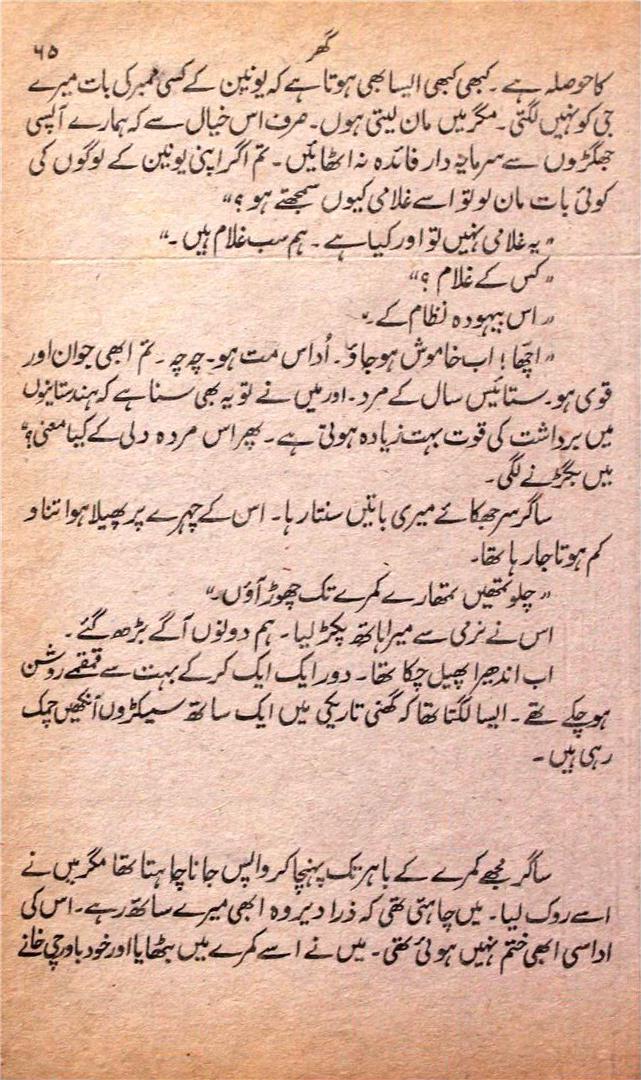 گھر ۶۵
کا حوصلہ ہے۔ کبھی کبھی ایسا بھی ہوتا ہے کہ یونین کے کسی ممبر کی بات میرے
جی کو نہیں لگتی۔ مگر میں مان لیتی ہوں۔ صرف اس خیال سے کہ ہمارے آپسی
جھگڑوں سے سرمایہ دار فائدہ نہ اٹھائیں۔ تم اگر اپنی یونین کے لوگوں کی
کوئی بات مان لو تو اسے غلامی کیوں سمجھتے ہو؟“
”یہ غلامی نہیں تو اور کیا ہے۔ ہم سب غلام ہیں۔“
”کس کے غلام؟“
”اس بیہودہ نظام کے۔“
”اچھا! اب خاموش ہو جاؤ۔ اُداس مت ہو۔ چہ چہ۔ تم ابھی جوان اور
قوی ہو۔ ستائیس سال کے مرد۔ اور میں نے تو یہ بھی سنا ہے کہ ہندستانیوں
میں برداشت کی قوت بہت زیادہ ہوتی ہے۔ پھر اس مردہ دلی کے کیا معنی؟“
میں بگڑنے لگی۔
ساگر سر جھکائے میری باتیں سنتا رہا۔ اس کے چہرے پر پھیلا ہوا تناو
کم ہوتا جا رہا تھا۔
”چلو تمھیں تمھارے کمرے تک چھوڑ آؤں۔“
اس نے نرمی سے میرا ہاتھ پکڑ لیا۔ ہم دونوں آگے بڑھ گئے۔
اب اندھیرا پھیل چکا تھا۔ دور ایک ایک کر کے بہت سے قمقمے روشن
ہو چکے تھے۔ ایسا لگتا تھا کہ گھنی تاریکی میں ایک ساتھ سیکڑوں آنکھیں چمک
رہی ہیں۔
ساگر مجھے کمرے کے باہر تک پہنچا کر واپس جانا چاہتا تھا مگر میں نے
اسے روک لیا۔ میں چاہتی تھی کہ ذرا دیر وہ ابھی میرے ساتھ رہے۔ اس کی
اداسی ابھی ختم نہیں ہوئی تھی۔ میں نے اسے کمرے میں بٹھایا اور خود باورچی خانے